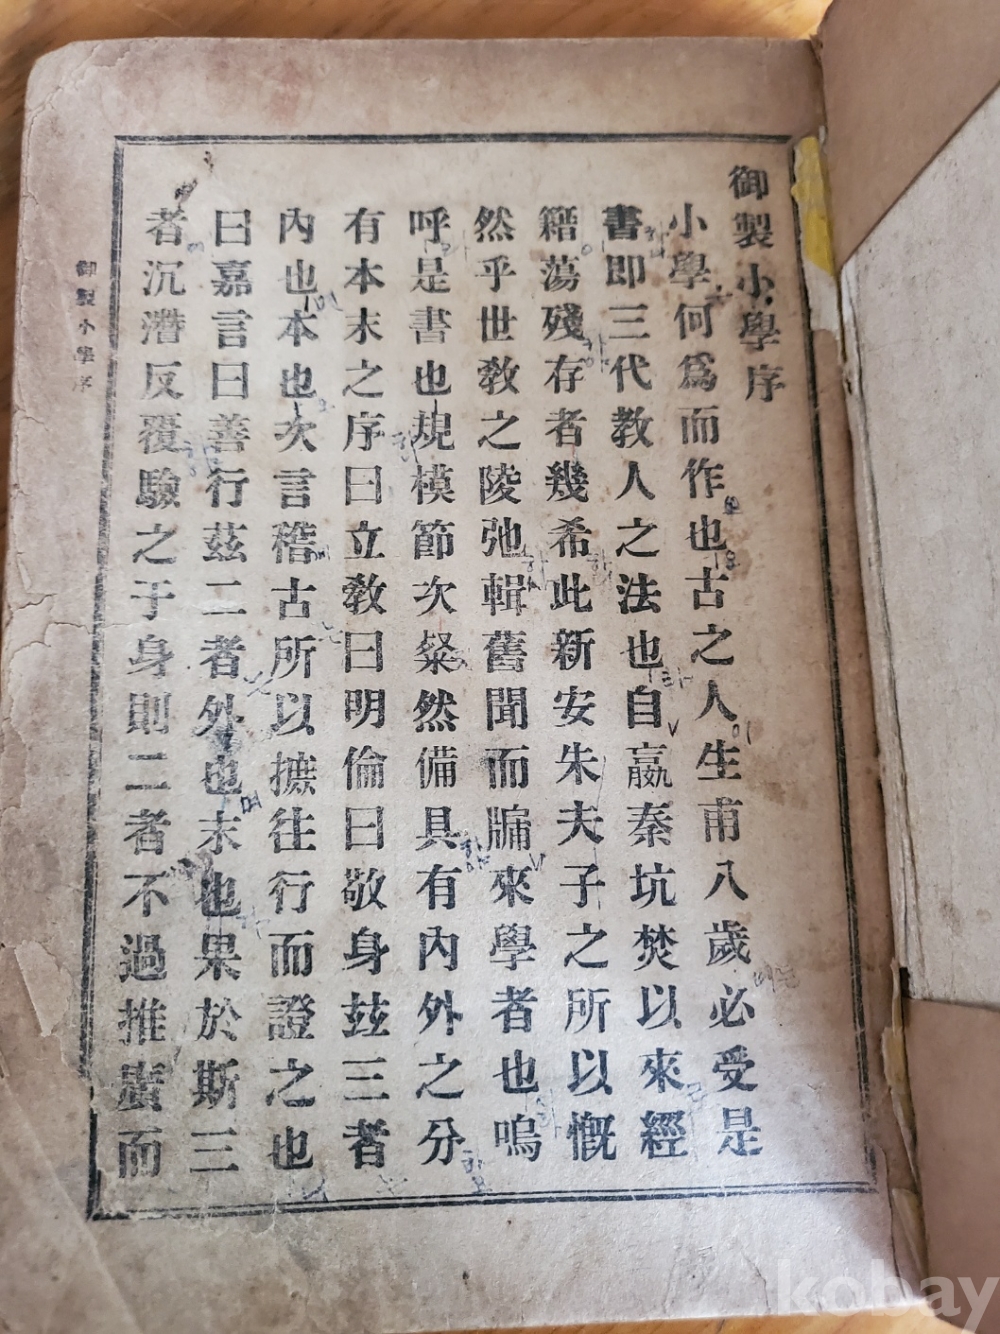 御製小學序
小學何爲而作也古之人生甫八歲必受是
書即三代教人之法也自嬴秦坑焚以來經
籍蕩殘存者幾希此新安朱夫子之所以慨
然乎世教之陵弛輯舊聞而牖來學者也嗚
呼是書也規模節次粲然備具有內外之分
有本末之序曰立教曰明倫曰敬身玆三者
內也本也次言稽古所以摭往行而證之也
曰嘉言曰善行茲二者外也末也果於斯三
者沉潛反覆驗之于身則二者不過推廣而
御製小學序
kobay